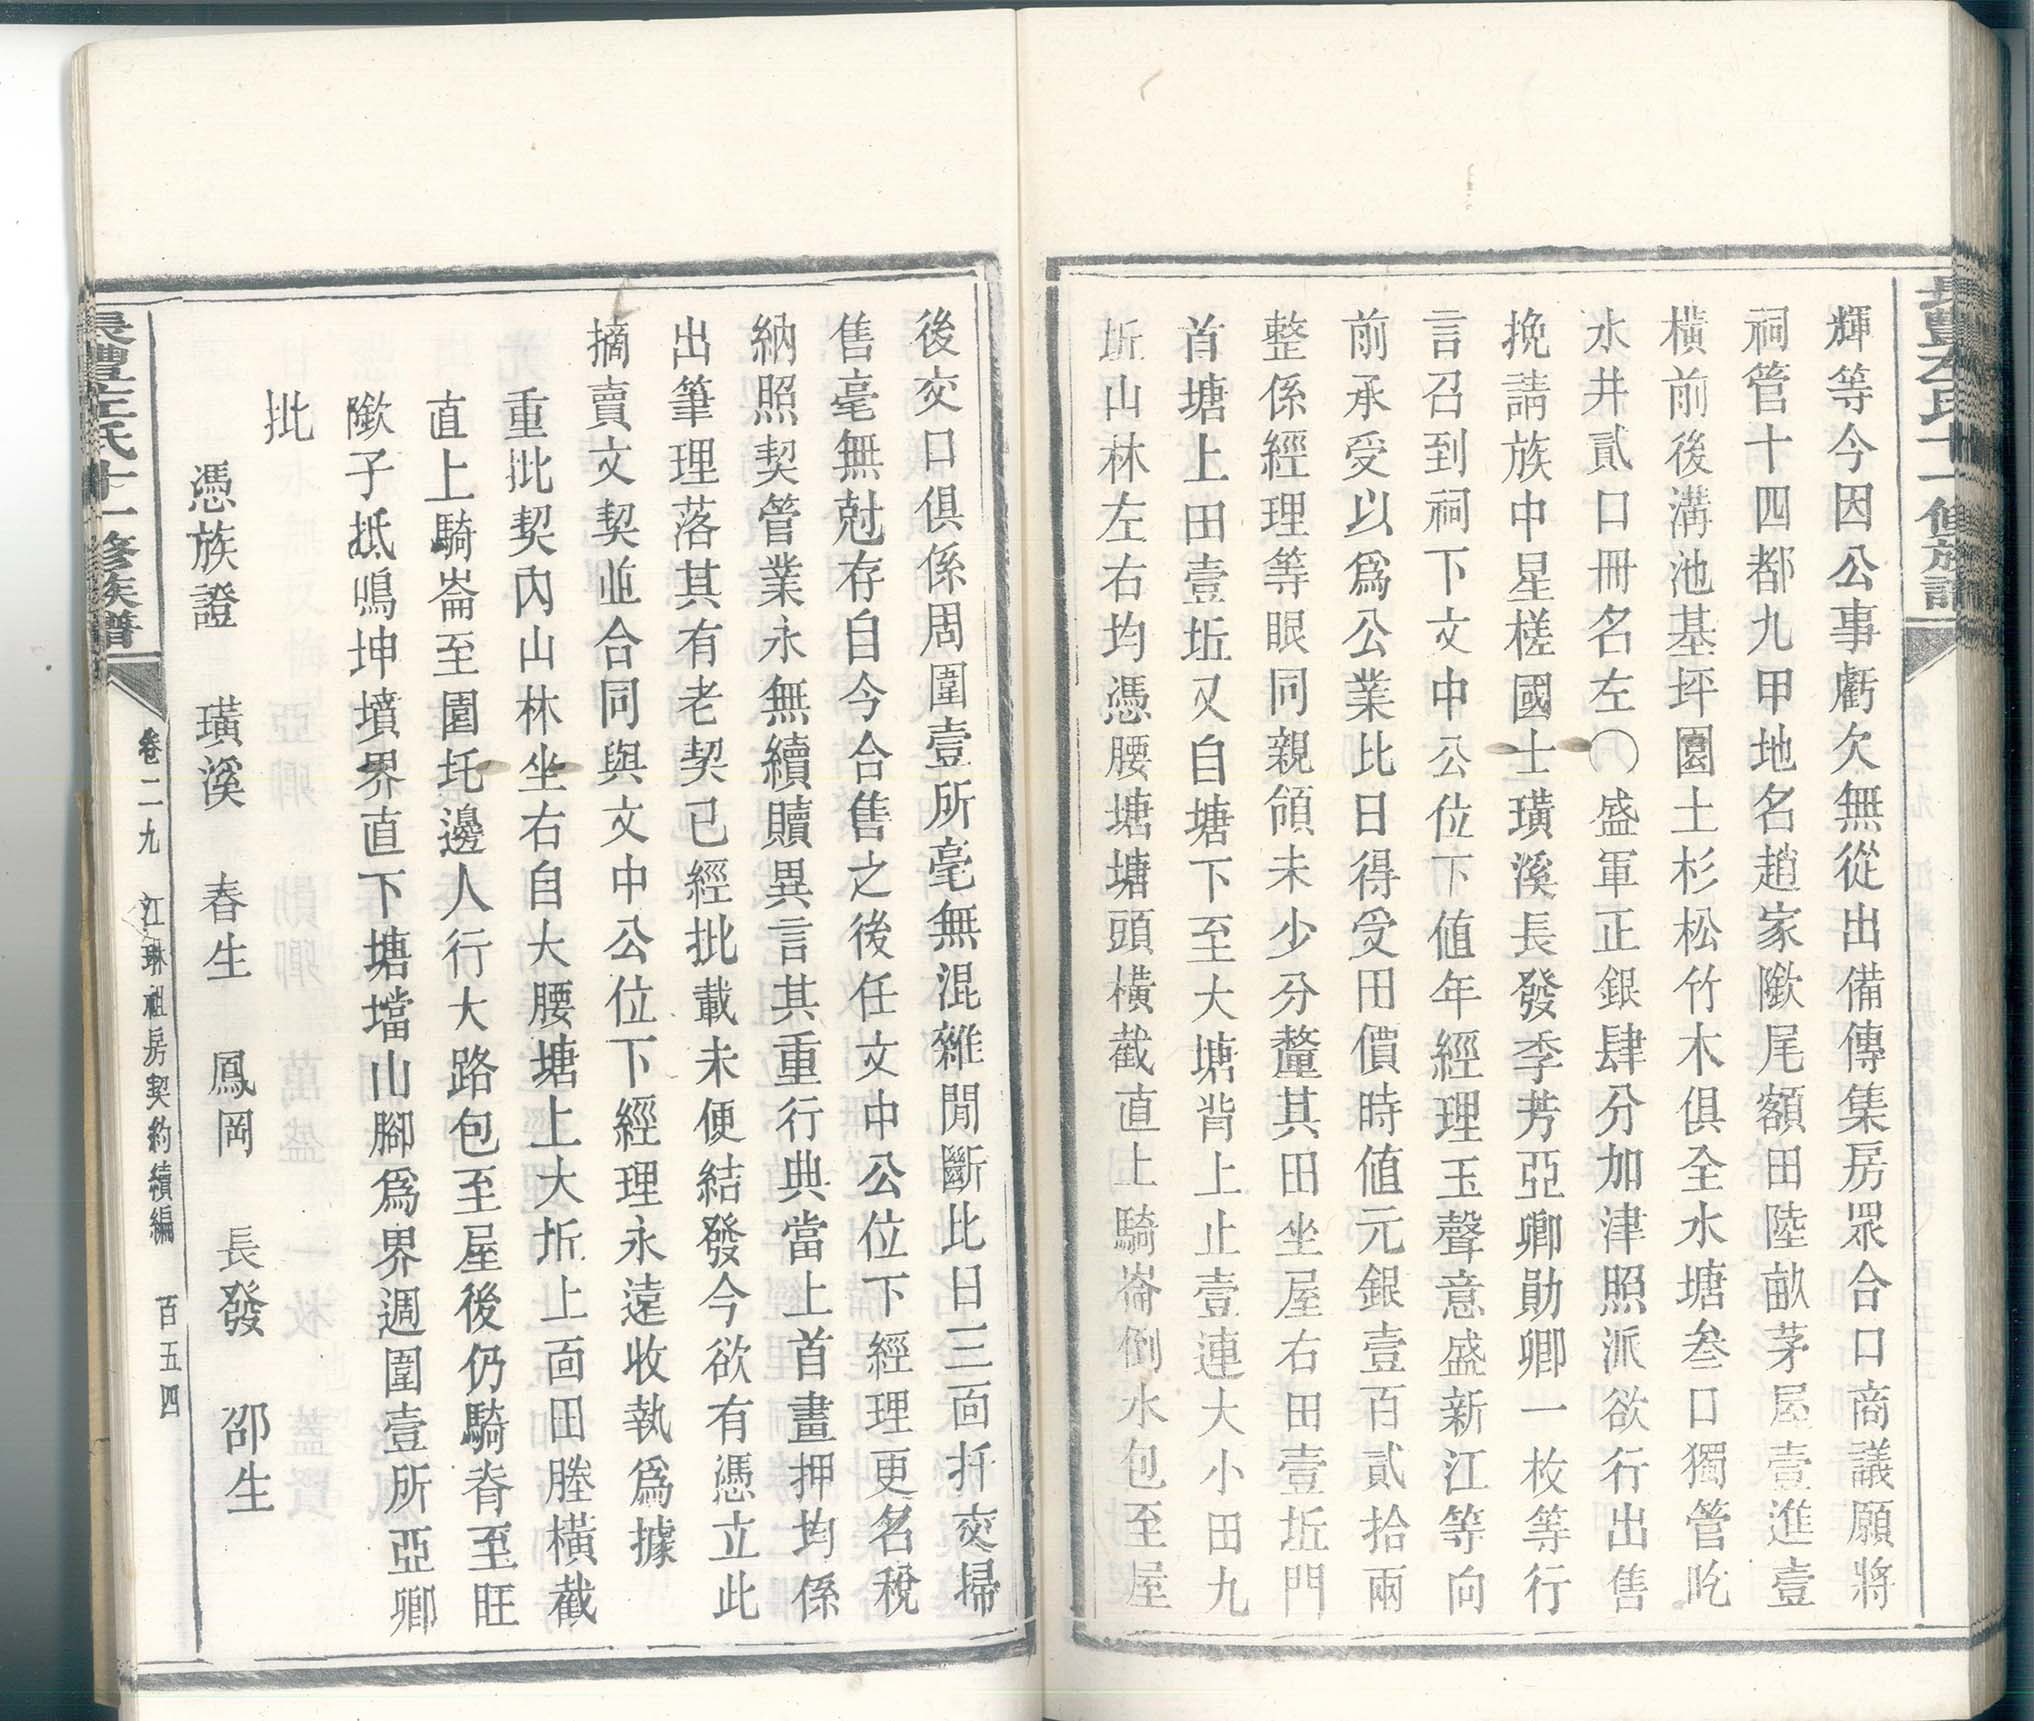 輝等今因公事虧欠無從出備傳集房眾合口商議願將
祠管十四都九甲地名趙家隞尾額田陸畝茅屋壹進壹
橫前後溝池基坪園土杉松竹木俱全水塘叁口獨管吃
水井貳口冊名左〇盛軍正銀肆分加津照派欲行出售
挽請族中星槎國士璜溪長發季芳亞卿勛卿一枚等行
言召到祠下文中公位下值年經理玉聲意盛新江等向
前承受以為公業比日得受田價時值元銀壹百貳拾兩
整係經理等眼同親領未少分釐其田坐屋右田壹坵門
首塘上田壹坵又自塘下至大塘背上止壹連大小田九
坵山林左右均憑腰塘塘頭橫截直上騎崙倒水包至屋
後交口俱係周圍壹所毫無混雜閒斷比日三面扦交掃
售毫無尅存自今合售之後任文中公位下經理更名稅
納照契管業永無續贖異言其重行典當上首畫押均係
出筆理落其有老契已經批載未便結發今欲有憑立此
摘賣文契並合同與文中公位下經理永遠收執為據
重批契內山林坐右自大腰塘上大坵上面田塍橫截
直上騎崙至園圫邊人行大路包至屋後仍騎脊至旺
隞子抵鳴坤墳界直下塘壋山腳為界週圍壹所亞卿
批
憑族證　璜溪　春生　鳳岡　長發　邵生
卷二九　江琳祖房契約續編　百五四